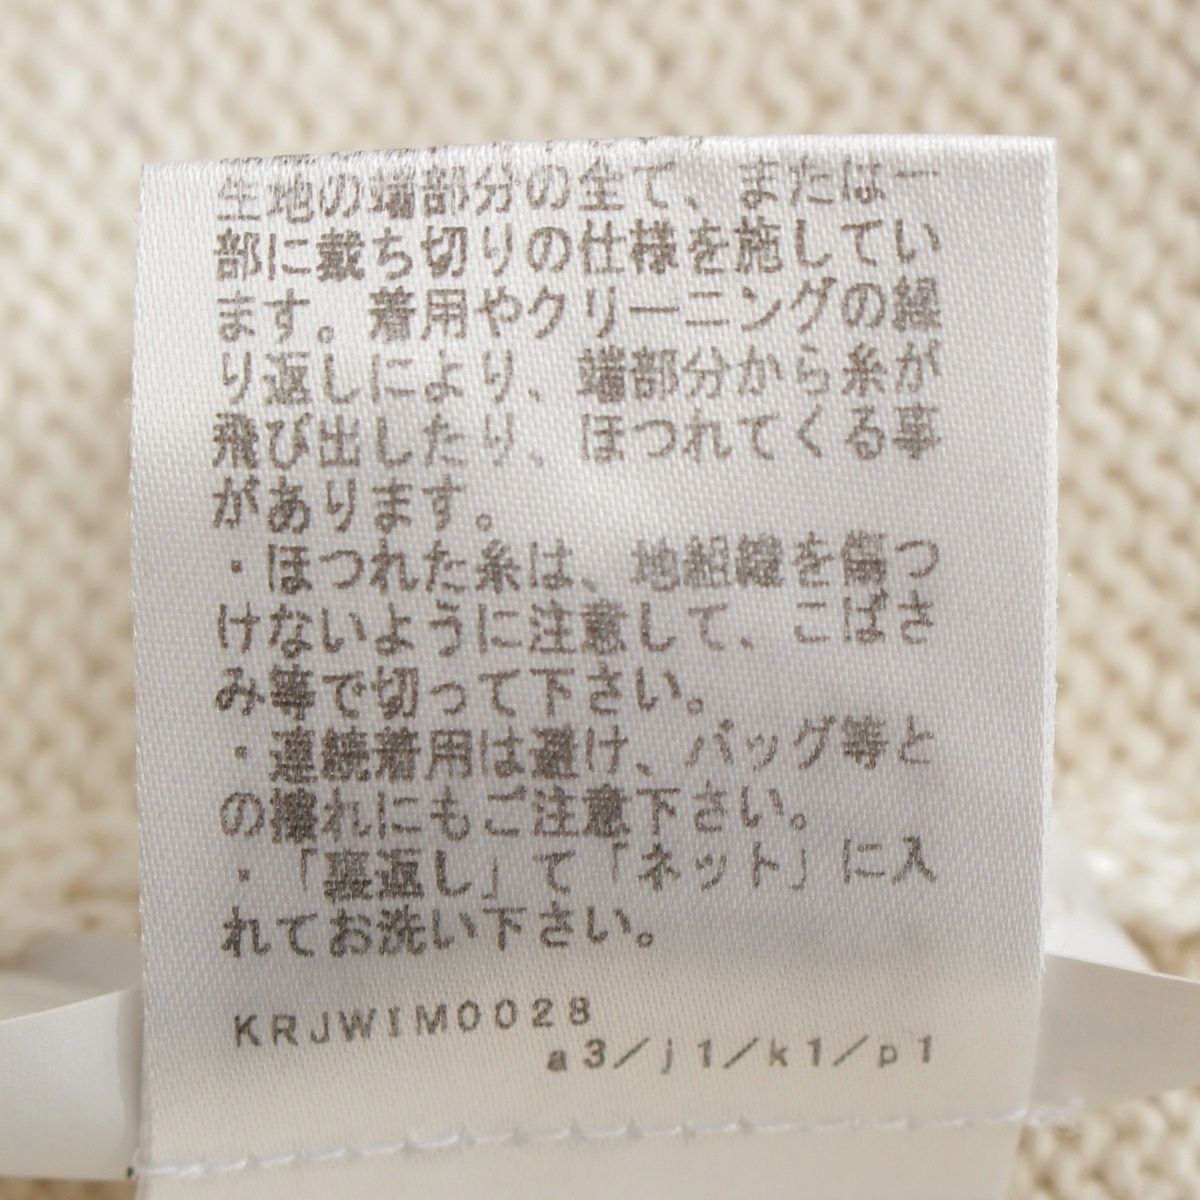 生地の端部分の全て、または一
部に裁ち切りの仕様を施してい
ます。着用やクリーニングの繰
り返しにより、端部分から糸が
飛び出したり、ほつれてくる事
があります。
・ほつれた糸は、地組織を傷つ
けないように注意して、こばさ
み等で切って下さい。
・連続着用は避け、バッグ等と
の擦れにもご注意下さい。
・「裏返し」て「ネット」に入
れてお洗い下さい。
KRJWIM0028
a3/j1/k1/p1